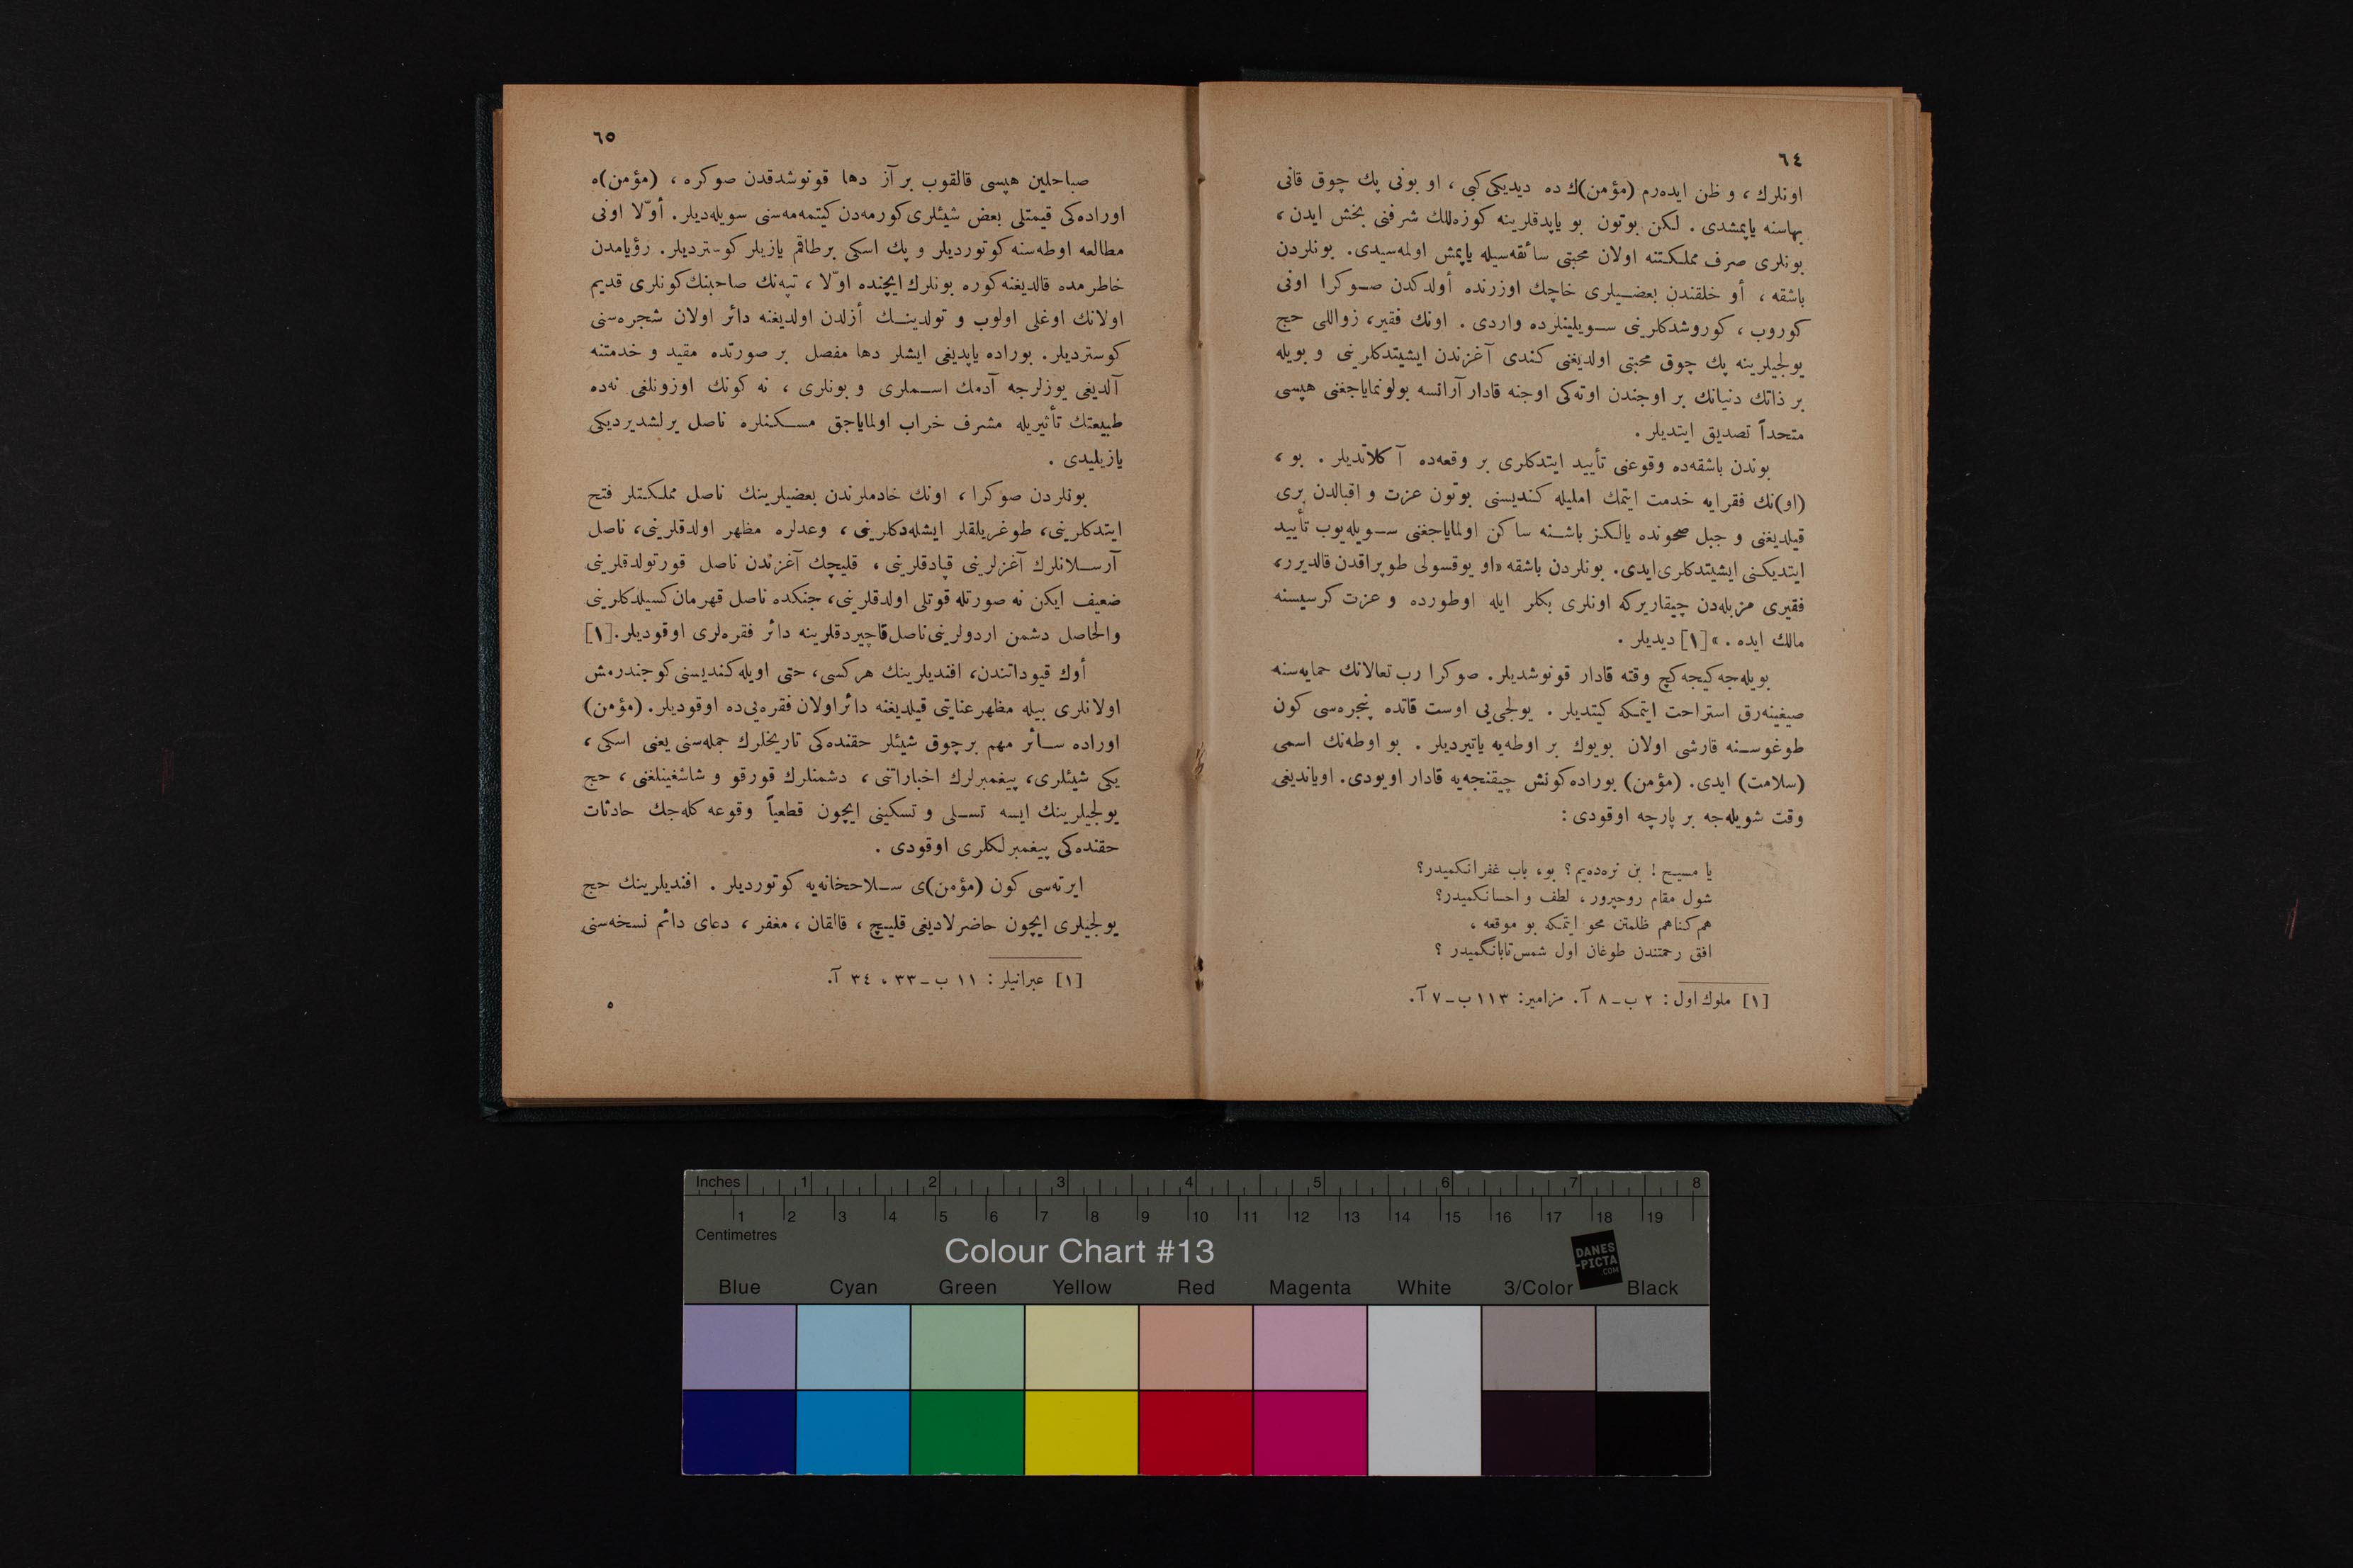 ٦٤
اونلرك ، و ظن ايده‌رم (مؤمن)ك ده ديديكى كبى ، او بونى پك چوق قانى
بهاسنه ياپمشدى . لكن بوتون بو ياپدقلرينه كوزه‌للك شرفنى بخش ايدن ،
بونلرى صرف مملكتنه اولان محبتى سائقه‌سيله ياپمش اولمه‌سيدى. بونلردن
باشقه ، أو خلقندن بعضيلرى خاچك اوزرنده أولدكدن صوكرا اونى
كوروب ، كوروشدكلرينى سويلينلرده واردى . اونك فقير، زواللى حج
يولجيلرينه پك چوق محبتى اولديغنى كندى آغزندن ايشيتدكلرينى و بويله
بر ذاتك دنيانك بر اوجندن اوته‌كى اوجنه قادار آرانسه بولونماياجغنى هپسى
متحداً تصديق ايتديلر .
بوندن باشقه‌ده وقوعنى تأييد ايتدكلرى بر وقعه‌ده آكلاتديلر . بو ،
(او)نك فقرايه خدمت ايتمك امليله كنديسنى بوتون عزت و اقبالدن برى
قيلديغنى و جبل صحونده يالكز باشنه ساكن اولماياجغنى سويله‌يوب تأييد
ايتديكنى ايشيتدكلرى ايدى. بونلردن باشقه «او يوقسولى طوپراقدن قالديرر،
فقيرى مزبله‌دن چيقاريركه اونلرى بكلر ايله اوطورده و عزت كرسيسنه
مالك ايده . » [١] ديديلر .
بويله‌جه كيجه كچ وقته قادار قونوشديلر. صوكرا رب تعالانك حمايه‌سنه
صيغينه‌رق استراحت ايتمكه كيتديلر . يولجى‌يى اوست قاتده پنجره‌سى كون
طوغوسنه قارشى اولان بويوك بر اوطه‌يه ياتيرديلر . بو اوطه‌نك اسمى
(سلامت) ايدى. (مؤمن) بوراده كونش چيقنجه‌يه قادار اويودى. اويانديغى
وقت شويله‌جه بر پارچه اوقودى :
يا مسيح ! بن نره‌ده‌يم؟ بو، باب غفرانكميدر؟
شول مقام روحپرور ، لطف و احسانكميدر؟
هم كناهم ظلمتن محو ايتمكه بو موقعه ،
افق رحمتندن طوغان اول شمس تابانگميدر ؟
[١] ملوك اول : ٢ ب ـ ٨ آ. مزامير: ١١٣ ب ـ ٧ آ.
٦٥
صباحلين هپسى قالقوب بر آز دها قونوشدقدن صوكره ، (مؤمن)ه
اوراده‌كى قيمتلى بعض شيئلرى كورمه‌دن كيتمه‌مه‌سنى سويله‌ديلر. أوّلا اونى
مطالعه اوطه‌سنه كوتورديلر و پك اسكى برطاقم يازيلر كوسترديلر. رؤيامدن
خاطرمده قالديغنه كوره بونلرك ايچنده اوّلا ، تپه‌نك صاحبنك كونلرى قديم
اولانك اوغلى اولوب و تولدينك أزلدن اولديغنه دائر اولان شجره‌سنى
كوسترديلر. بوراده ياپديغى ايشلر دها مفصل بر صورتده مقيد و خدمتنه
آلديغى يوزلرجه آدمك اسملرى و بونلرى ، نه كونك اوزونلغى نه‌ده
طبيعتك تأثيريله مشرف خراب اولماياجق مسكنلره ناصل يرلشديرديكى
يازيليدى .
بونلردن صوكرا ، اونك خادملرندن بعضيلرينك ناصل مملكتلر فتح
ايتدكلرينى، طوغريلقلر ايشله‌دكلرينى ، وعدلره مظهر اولدقلرينى، ناصل
آرسلانلرك آغزلرينى قپادقلرينى ، قليچك آغزندن ناصل قورتولدقلرينى
ضعيف ايكن نه صورتله قوتلى اولدقلرينى، جنكده ناصل قهرمان كسيلدكلرينى
والحاصل دشمن اردولرينى ناصل قاچيردقلرينه دائر فقره‌لرى اوقوديلر.[١]
أوك قيوداتندن، افنديلرينك هركسى، حتى اويله كنديسنى كوجندرمش
اولانلرى بيله مظهر عنايتى قيلديغنه دائر اولان فقره‌يى ده اوقوديلر. (مؤمن)
اوراده سائر مهم برچوق شيئلر حقنده‌كى تاريخلرك جمله‌سنى يعنى اسكى ،
يكى شيئلرى، پيغمبرلرك اخباراتنى ، دشمنلرك قورقو و شاشغينلغنى ، حج
يولجيلرينك ايسه تسلى و تسكينى ايچون قطعياً وقوعه كله‌جك حادثات
حقنده‌كى پيغمبرلكلرى اوقودى .
ايرته‌سى كون (مؤمن)ى سلاحخانه‌يه كوتورديلر . افنديلرينك حج
يولجيلرى ايچون حاضرلاديغى قليچ ، قالقان ، مغفر ، دعاى دائم نسخه‌سنى
[١] عبرانيلر : ١١ ب ـ ٣٣ ، ٣٤ آ.
٥
Inches 1 2 3 4 5 6 7 8
1 2 3 4 5 6 7 8 9 10 11 12 13 14 15 16 17 18 19
Centimetres
Colour Chart #13
DANES
-PICTA
.COM
Blue Cyan Green Yellow Red Magenta White 3/Color Black